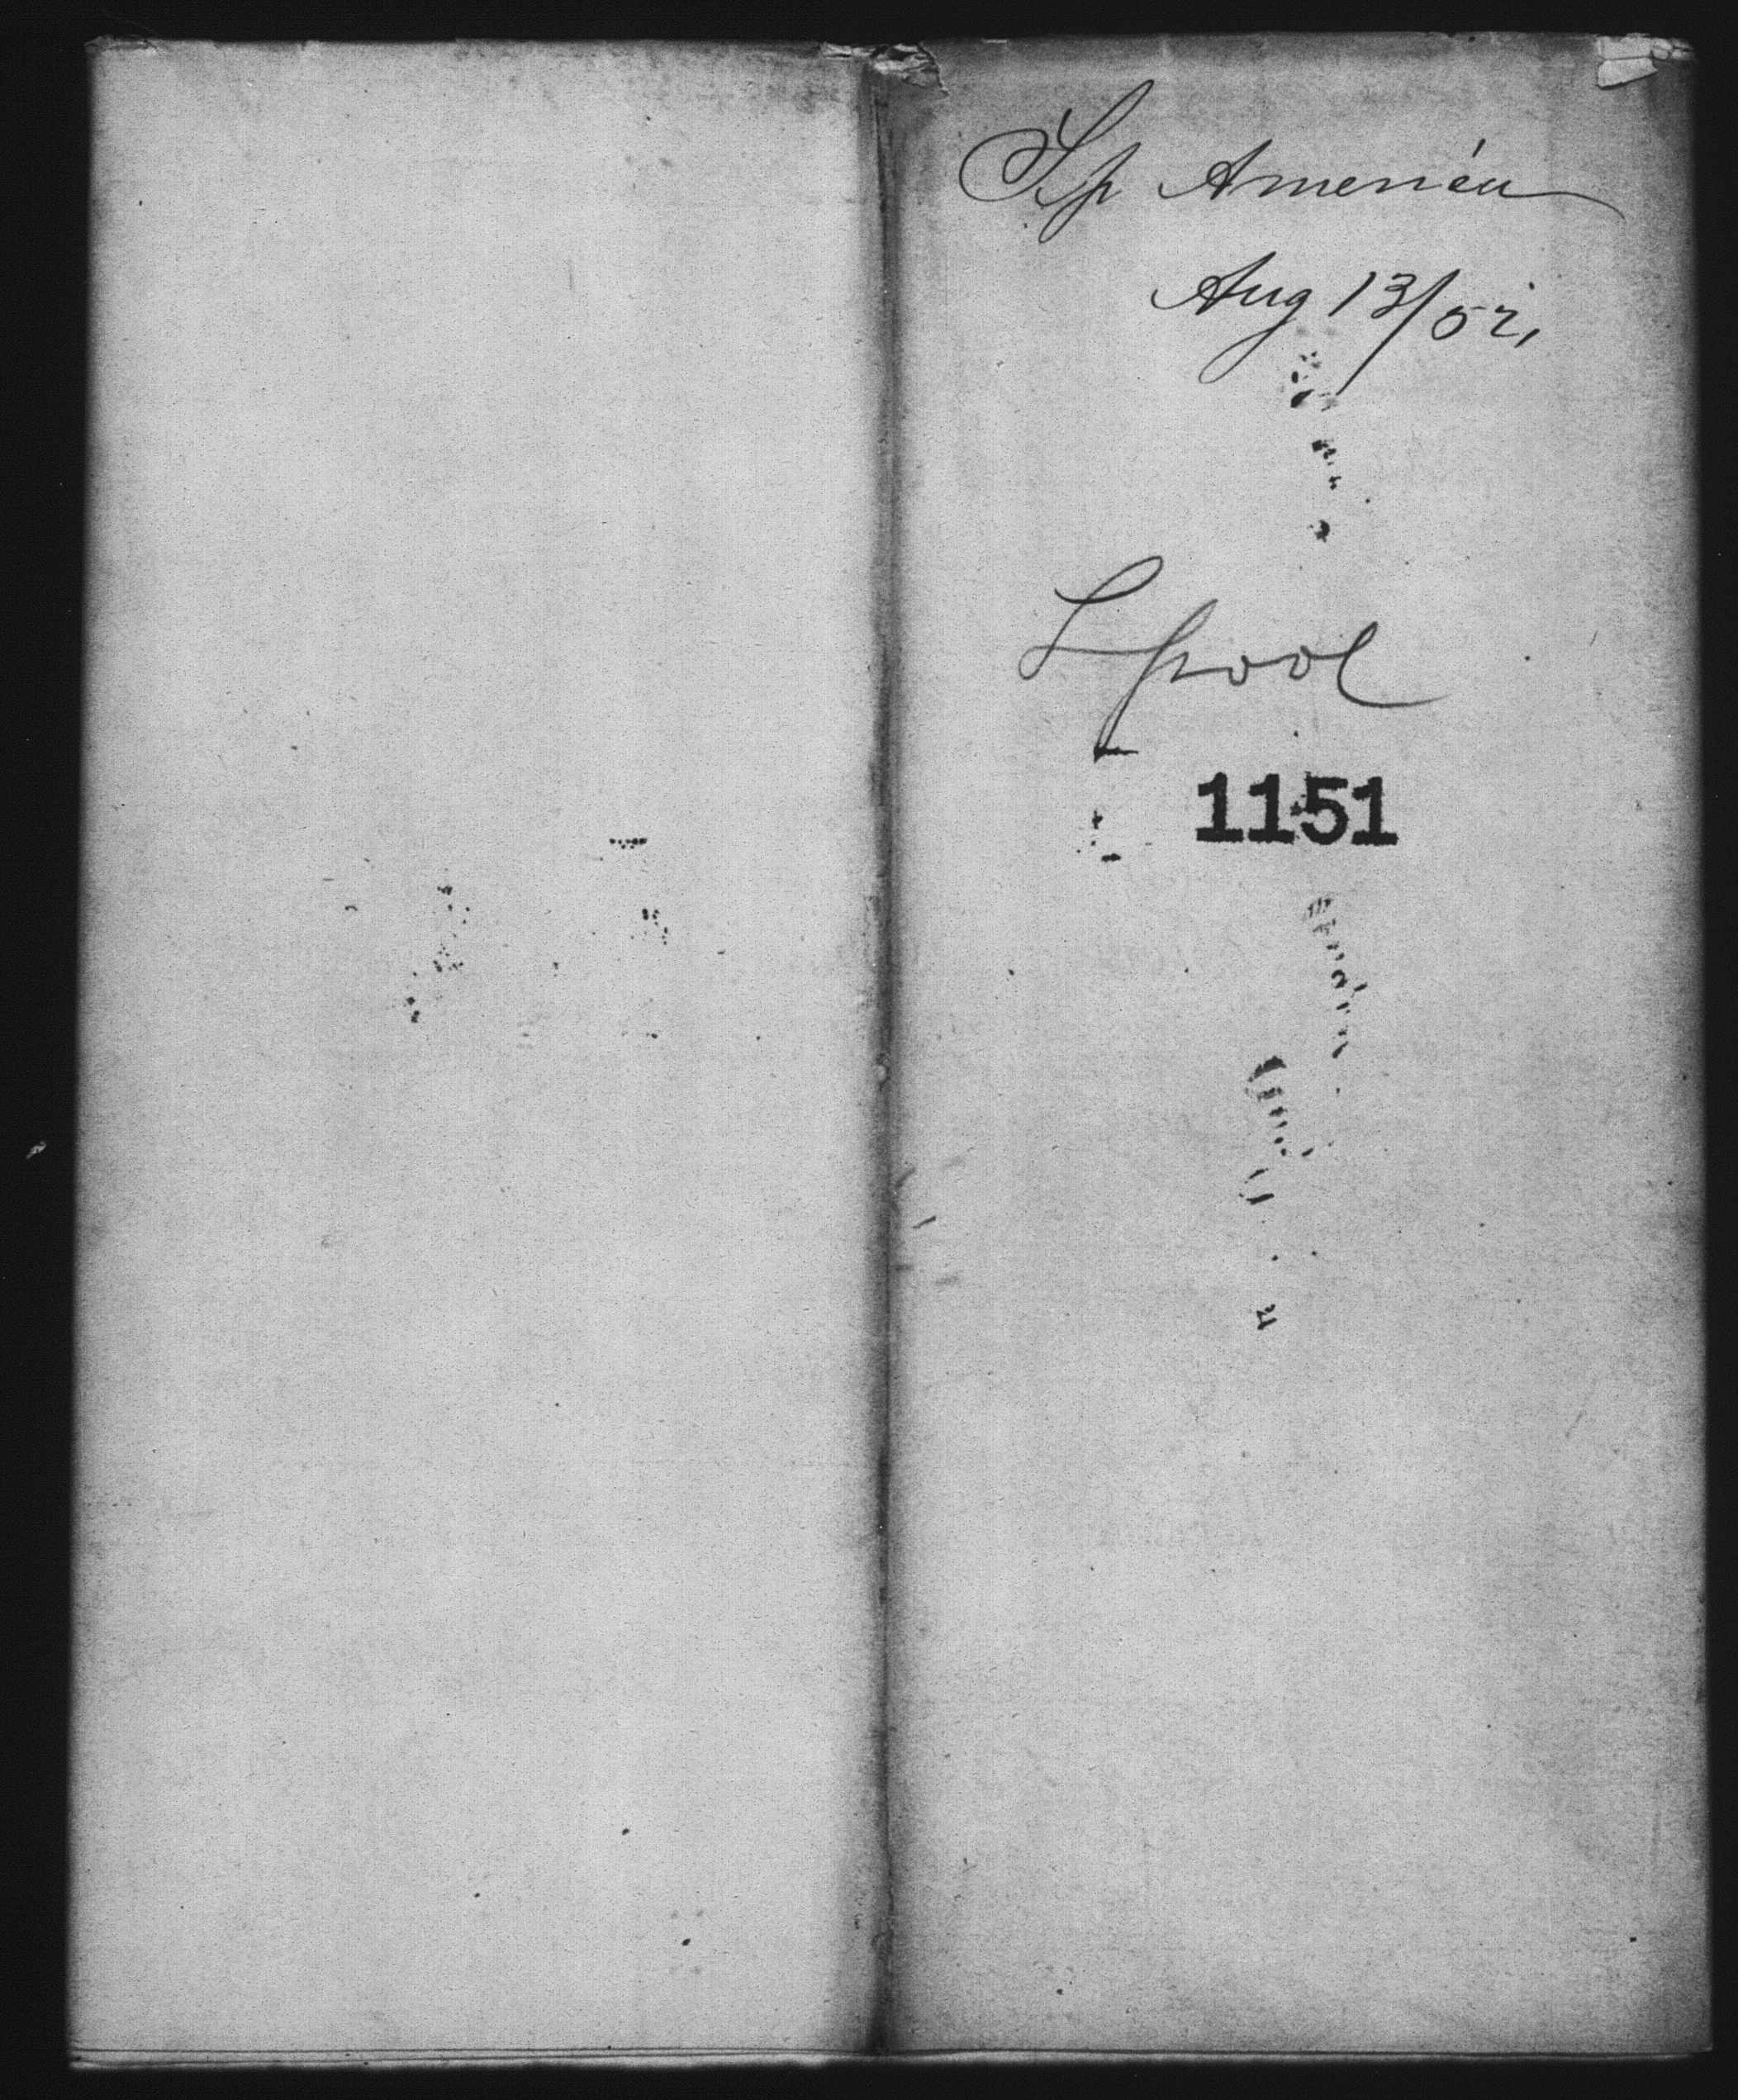 Shp America
Aug 13/52,
Lpool
1151